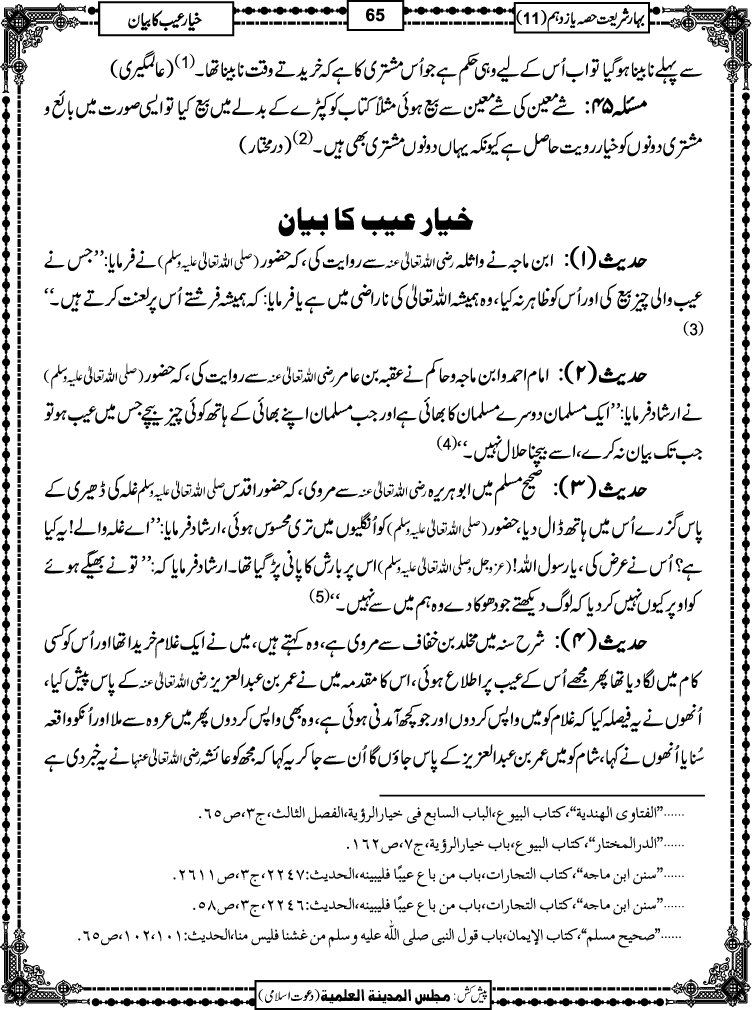 بہار شریعت حصہ یازدہم (11)
65
خیار عیب کا بیان
سے پہلے نابینا ہو گیا تو اب اُس کے لیے وہی حکم ہے جو اُس مشتری کا ہے کہ خریدتے وقت نابینا تھا۔ (1) (عالمگیری)
مسئلہ ۴۵: شے معین کی شے معین سے بیع ہوئی مثلاً کتاب کو کپڑے کے بدلے میں بیع کیا تو ایسی صورت میں بائع و
مشتری دونوں کو خیار رویت حاصل ہے کیونکہ یہاں دونوں مشتری بھی ہیں۔ (2) (درمختار)
خیار عیب کا بیان
حدیث (۱): ابن ماجہ نے واثلہ رضی اللہ تعالیٰ عنہ سے روایت کی، کہ حضور (صلی اللہ تعالیٰ علیہ وسلم) نے فرمایا: ’’جس نے
عیب والی چیز بیع کی اور اُس کو ظاہر نہ کیا، وہ ہمیشہ اللہ تعالیٰ کی ناراضی میں ہے یا فرمایا: کہ ہمیشہ فرشتے اُس پر لعنت کرتے ہیں۔‘‘
(3)
حدیث (۲): امام احمد و ابن ماجہ و حاکم نے عقبہ بن عامر رضی اللہ تعالیٰ عنہ سے روایت کی، کہ حضور (صلی اللہ تعالیٰ علیہ وسلم)
نے ارشاد فرمایا: ’’ایک مسلمان دوسرے مسلمان کا بھائی ہے اور جب مسلمان اپنے بھائی کے ہاتھ کوئی چیز بیچے جس میں عیب ہو تو
جب تک بیان نہ کرے، اسے بیچنا حلال نہیں۔‘‘ (4)
حدیث (۳): صحیح مسلم میں ابوہریرہ رضی اللہ تعالیٰ عنہ سے مروی، کہ حضور اقدس صلی اللہ تعالیٰ علیہ وسلم غلہ کی ڈھیری کے
پاس گزرے اُس میں ہاتھ ڈال دیا، حضور (صلی اللہ تعالیٰ علیہ وسلم) کو اُنگلیوں میں تری محسوس ہوئی، ارشاد فرمایا: ’’اے غلہ والے! یہ کیا
ہے؟ اُس نے عرض کی، یا رسول اللہ! (عزوجل وصلی اللہ تعالیٰ علیہ وسلم) اس پر بارش کا پانی پڑ گیا تھا۔ ارشاد فرمایا کہ: ’’تو نے بھیگے ہوئے
کو اوپر کیوں نہیں کر دیا کہ لوگ دیکھتے جو دھوکا دے وہ ہم میں سے نہیں۔‘‘ (5)
حدیث (۴): شرح سنہ میں مخلد بن خفاف سے مروی ہے، وہ کہتے ہیں، میں نے ایک غلام خریدا تھا اور اُس کو کسی
کام میں لگا دیا تھا پھر مجھے اُس کے عیب پر اطلاع ہوئی، اس کا مقدمہ میں نے عمر بن عبدالعزیز رضی اللہ تعالیٰ عنہ کے پاس پیش کیا،
اُنھوں نے یہ فیصلہ کیا کہ غلام کو میں واپس کردوں اور جو کچھ آمدنی ہوئی ہے، وہ بھی واپس کردوں پھر میں عروہ سے ملا اور اُنکو واقعہ
سُنایا اُنھوں نے کہا، شام کو میں عمر بن عبدالعزیز کے پاس جاؤں گا اُن سے جا کر یہ کہا کہ مجھ کو عائشہ رضی اللہ تعالیٰ عنہا نے یہ خبر دی ہے
......’’الفتاوی الھندیة‘‘، کتاب البیوع، الباب السابع فی خیار الرؤیة، الفصل الثالث، ج۳، ص۶۵.
......’’الدرالمختار‘‘، کتاب البیوع، باب خیار الرؤیة، ج۷، ص۱۶۲.
......’’سنن ابن ماجه‘‘، کتاب التجارات، باب من باع عیبًا فلیبینه، الحدیث: ۲۲۴۷، ج۳، ص۲۶۱۱.
......’’سنن ابن ماجه‘‘، کتاب التجارات، باب من باع عیبًا فلیبینه، الحدیث: ۲۲۴۶، ج۳، ص۵۸.
......’’صحیح مسلم‘‘، کتاب الإیمان، باب قول النبی صلی اللّٰه علیه وسلم من غشنا فلیس منا، الحدیث: ۱۰۱، ۱۰۲، ص۶۵.
پیش کش: مجلس المدینة العلمیة (دعوت اسلامی)